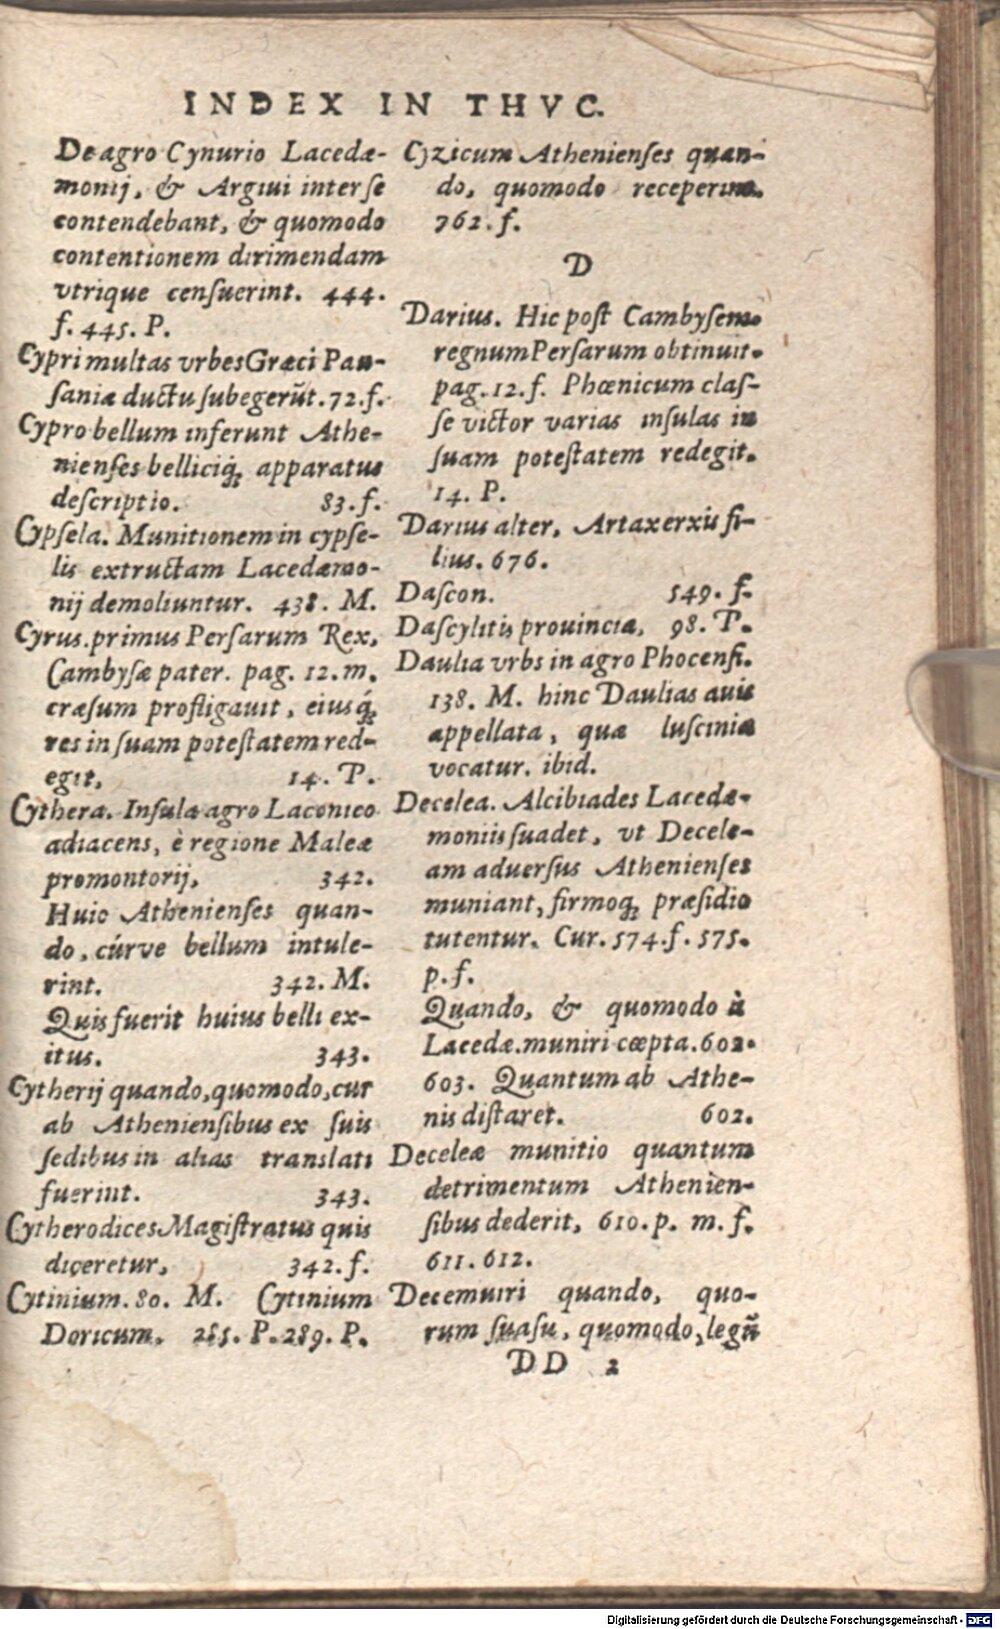 INDEX IN THVC.
De agro Cynurio Lacedæ-
monij, & Argiui inter se
contendebant, & quomodo
contentionem dirimendam
vtrique censuerint. 444.
f. 445. P.
Cypri multas vrbes Græci Pau-
saniæ ductu subegerũt. 72. f.
Cypro bellum inferunt Athe-
nienses bellicíq; apparatus
descriptio. 83. f.
Cypsela. Munitionem in cypse-
lis extructam Lacedæmo-
nij demoliuntur. 438. M.
Cyrus. primus Persarum Rex,
Cambysæ pater. pag. 12. m.
cræsum profligauit, eiusq́;
res in suam potestatem red-
egit, 14. P.
Cythera. Insula agro Laconico
adiacens, è regione Maleæ
promontorij, 342.
Huic Athenienses quan-
do, cúrve bellum intule-
rint. 342. M.
Quis fuerit huius belli ex-
itus. 343.
Cytherij quando, quomodo, cur
ab Atheniensibus ex suis
sedibus in alias translati
fuerint. 343.
Cytherodices Magistratus quis
diceretur, 342. f.
Cytinium. 80. M. Cytinium
Doricum, 285. P. 289. P.
Cyzicum Athenienses quan-
do, quomodo receperint.
762. f.
D
Darius. Hic post Cambysem
regnum Persarum obtinuit.
pag. 12. f. Phœnicum clas-
se victor varias insulas in
suam potestatem redegit.
14. P.
Darius alter, Artaxerxis fi-
lius. 676.
Dascon. 549. f.
Dascylitis prouincia, 98. P.
Daulia vrbs in agro Phocensi.
138. M. hinc Daulias auis
appellata, quæ luscinia
vocatur. ibid.
Decelea. Alcibiades Lacedæ-
moniis suadet, vt Decele-
am aduersus Athenienses
muniant, firmoq; præsidio
tutentur. Cur. 574. f. 575.
p. f.
Quando, & quomodo à
Lacedæ. muniri cœpta. 602.
603. Quantum ab Athe-
nis distaret. 602.
Deceleæ munitio quantum
detrimentum Athenien-
sibus dederit, 610. p. m. f.
611. 612.
Decemuiri quando, quo-
rum suasu, quomodo, legũ
DD 2
Digitalisierung gefördert durch die Deutsche Forschungsgemeinschaft - DFG